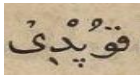 قوُپْدِىْ